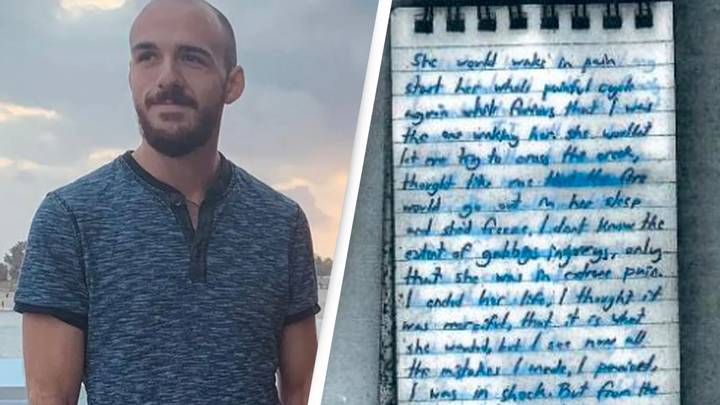 She would wake in pain
start her whole painful cycle
again while furious that I was
the one waking her. She wouldnt
let me try to cross the creek,
thought like me the fire
would go out in her sleep
and she'd freeze. I dont know the
extent of gabbys injurys. only
that she was in extreme pain.
I ended her life, I thought it
was merciful, that it is what
she wanted, but I see now all
the mistakes I made, I panicked,
I was in shock. But from the